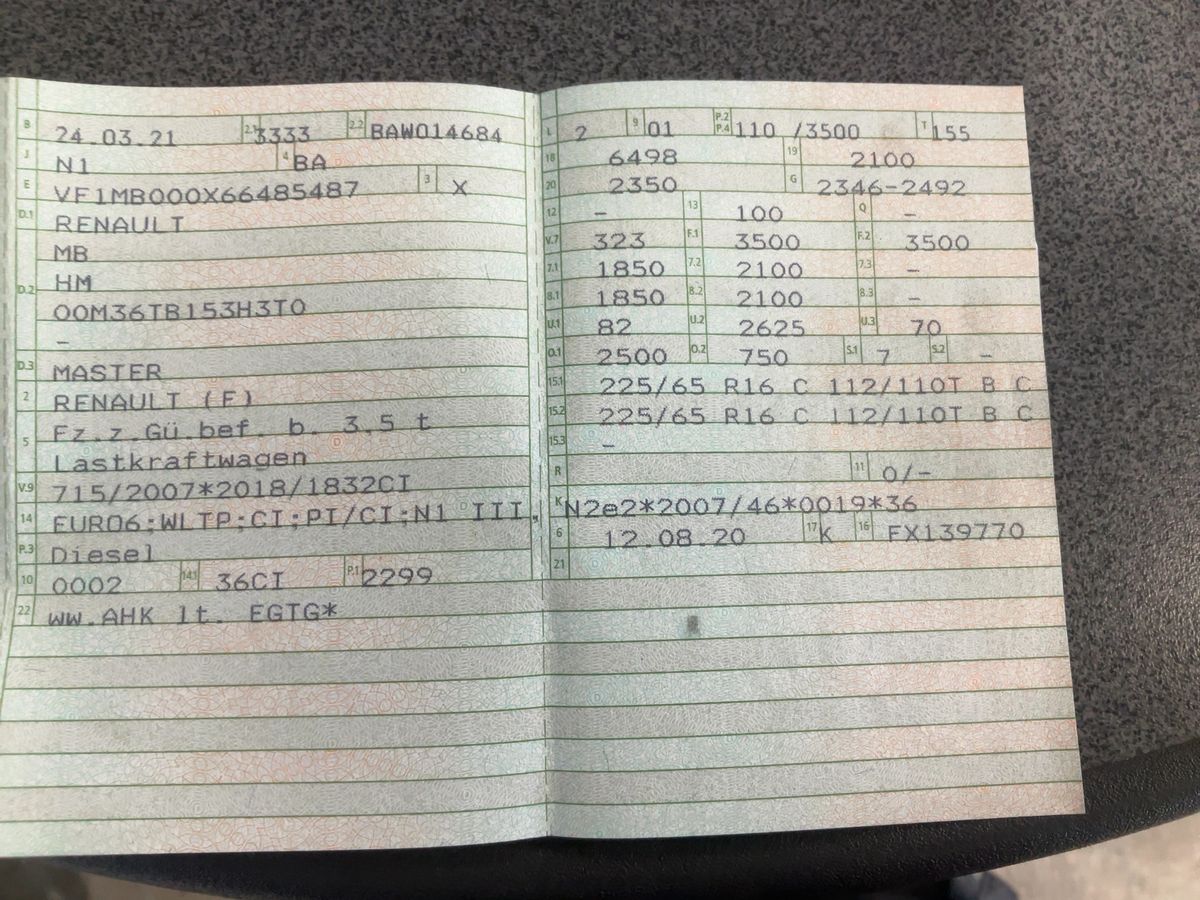 B 24.03.21 2.1 3333 2.2 BAW014684
J N1 4 BA
E VF1MB000X66485487 3 X
D.1 RENAULT
MB
D.2 HM
00M36TB153H3T0
-
D.3 MASTER
2 RENAULT (F)
5 Fz.z.Gü.bef. b. 3,5 t
Lastkraftwagen
V.9 715/2007*2018/1832CI
14 EURO6;WLTP;CI;PI/CI;N1 III,
P.3 Diesel
10 0002 14.1 36CI P.1 2299
22 ww.AHK lt. EGTG*
L 2 9 01 P.2 P.4 110 /3500 T 155
18 6498 19 2100
20 2350 G 2346-2492
12 - 13 100 Q -
V.7 323 F.1 3500 F.2 3500
7.1 1850 7.2 2100 7.3 -
8.1 1850 8.2 2100 8.3 -
U.1 82 U.2 2625 U.3 70
O.1 2500 O.2 750 S.1 7 S.2 -
15.1 225/65 R16 C 112/110T B C
15.2 225/65 R16 C 112/110T B C
15.3 -
R 11 0/-
K N2e2*2007/46*0019*36
6 12.08.20 17 K 16 FX139770
21